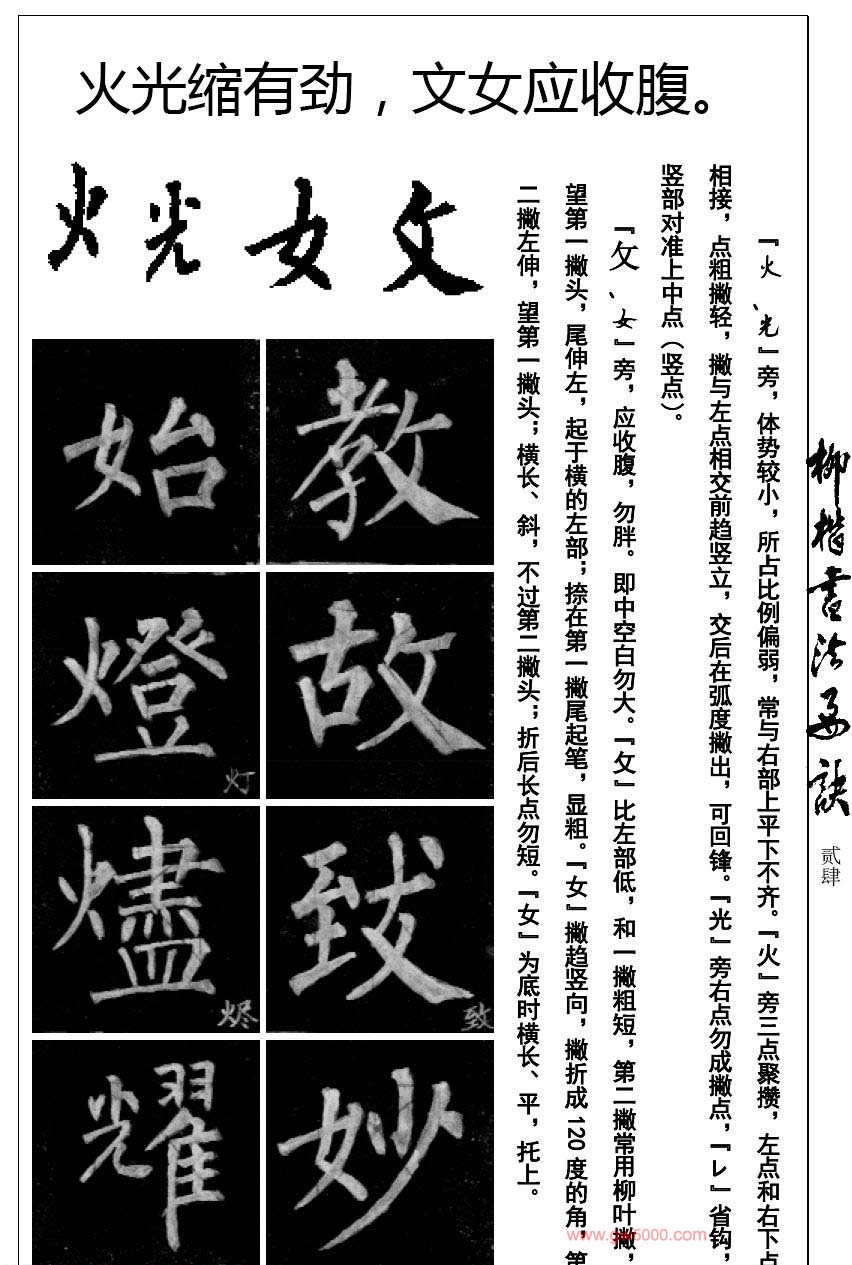 火光缩有劲，文女应收腹。
火 光 女 攵
『火、光』旁，体势较小，所占比例偏弱，常与右部上平下不齐。『火』旁三点聚攒，左点和右下点
相接，点粗撇轻，撇与左点相交前趋竖立，交后在弧度撇出，可回锋。『光』旁右点勿成撇点，『㇄』省钩，
竖部对准上中点（竖点）。
『攵、女』旁，应收腹，勿胖。即中空白勿大。『攵』比左部低，和一撇粗短，第二撇常用柳叶撇，
望第一撇头，尾伸左，起于横的左部；捺在第一撇尾起笔，显粗。『女』撇趋竖向，撇折成120度的角，第
二撇左伸，望第一撇头；横长、斜，不过第二撇头；折后长点勿短。『女』为底时横长、平，托上。
始 教
燈 灯 故
燼 烬 致 致
耀 妙
柳楷书法要诀
贰肆